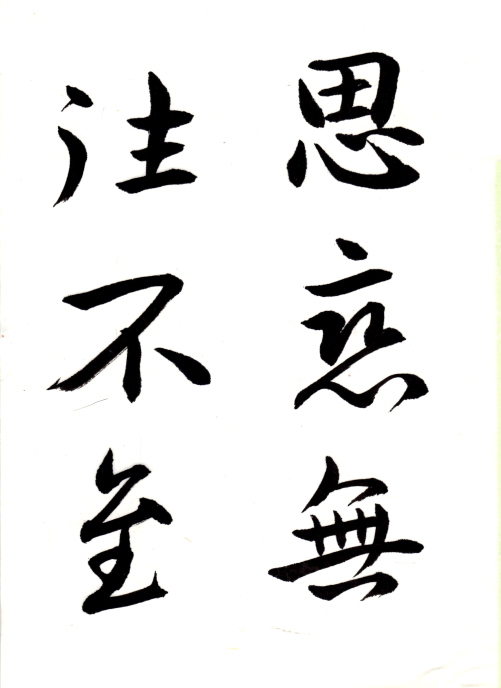 思恋無
往不至